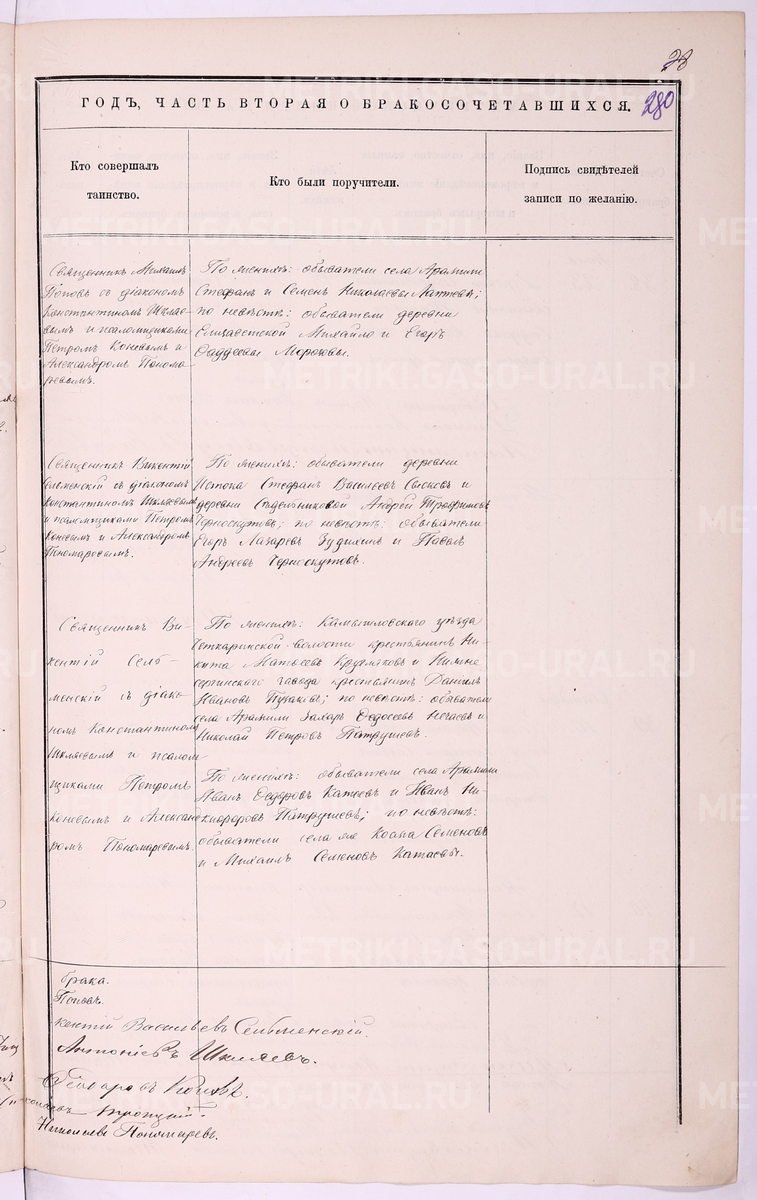 28
280
ГОДЪ, ЧАСТЬ ВТОРАЯ О БРАКОСОЧЕТАВШИХСЯ.
Кто совершалъ
таинство.
Кто были поручители.
Подпись свидѣтелей
записи по желанію.
Священникъ Михаилъ
Поповъ съ діакономъ
Константиномъ Шкляе-
вымъ и псаломщиками
Петромъ Коневымъ и
Александромъ Понома-
ревымъ.
По женихѣ: обыватели села Арамили
Стефанъ и Семенъ Николаевы Лаптевы;
по невѣстѣ: обыватели деревни
Елизаветской Михайло и Егоръ
Фаддеевы Морозовы.
Священникъ Викентій
Сельменскій съ діакономъ
Константиномъ Шкляевымъ
и псаломщиками Петромъ
Коневымъ и Александромъ
Пономаревымъ.
По женихѣ: обыватели деревни
Истока Стефанъ Васильевъ
деревни Андрей Трофимовъ
Черноскутовъ; по невѣстѣ: обыватели
Егоръ Лазаревъ Зудихинъ и Павелъ
Андреевъ Черноскутовъ.
Священникъ Ви-
кентій Сель-
менскій съ діако-
номъ Константиномъ
Шкляевымъ и псалом-
щиками Петромъ
Коневымъ и Александ-
ромъ Пономаревымъ.
По женихѣ: Камышловскаго уѣзда
Четкаринской волости крестьянинъ Ни-
кита и Нижне-
сергинскаго завода крестьянинъ Даніилъ
Ивановъ по невѣстѣ: обыватели
села Арамили Захаръ Федосеевъ Нечаевъ и
Николай Петровъ Патрушевъ.
По женихѣ: обыватели села Арамили
Иванъ Федоровъ Катаевъ и Иванъ Ни-
кифоровъ Патрушевъ; по невѣстѣ:
обыватели села же Козьма Семеновъ
и Михаилъ Семеновъ Катаевы.
брака.
Поповъ.
кентій Васильевъ Сельменскій.
Антоніевъ Шкляевъ.
Коневъ.
Троицкій.
Николаевъ Пономаревъ.
METRIKI.GASO-URAL.RU